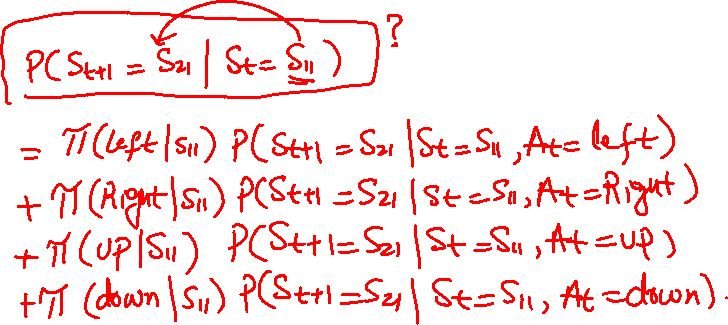 P(St+1 = S21 | St = S11) ?
= π(left|S11) P(St+1 = S21 | St = S11, At = left)
+ π(Right|S11) P(St+1 = S21 | St = S11, At = Right)
+ π(UP|S11) P(St+1 = S21 | St = S11, At = UP)
+ π(down|S11) P(St+1 = S21 | St = S11, At = down).